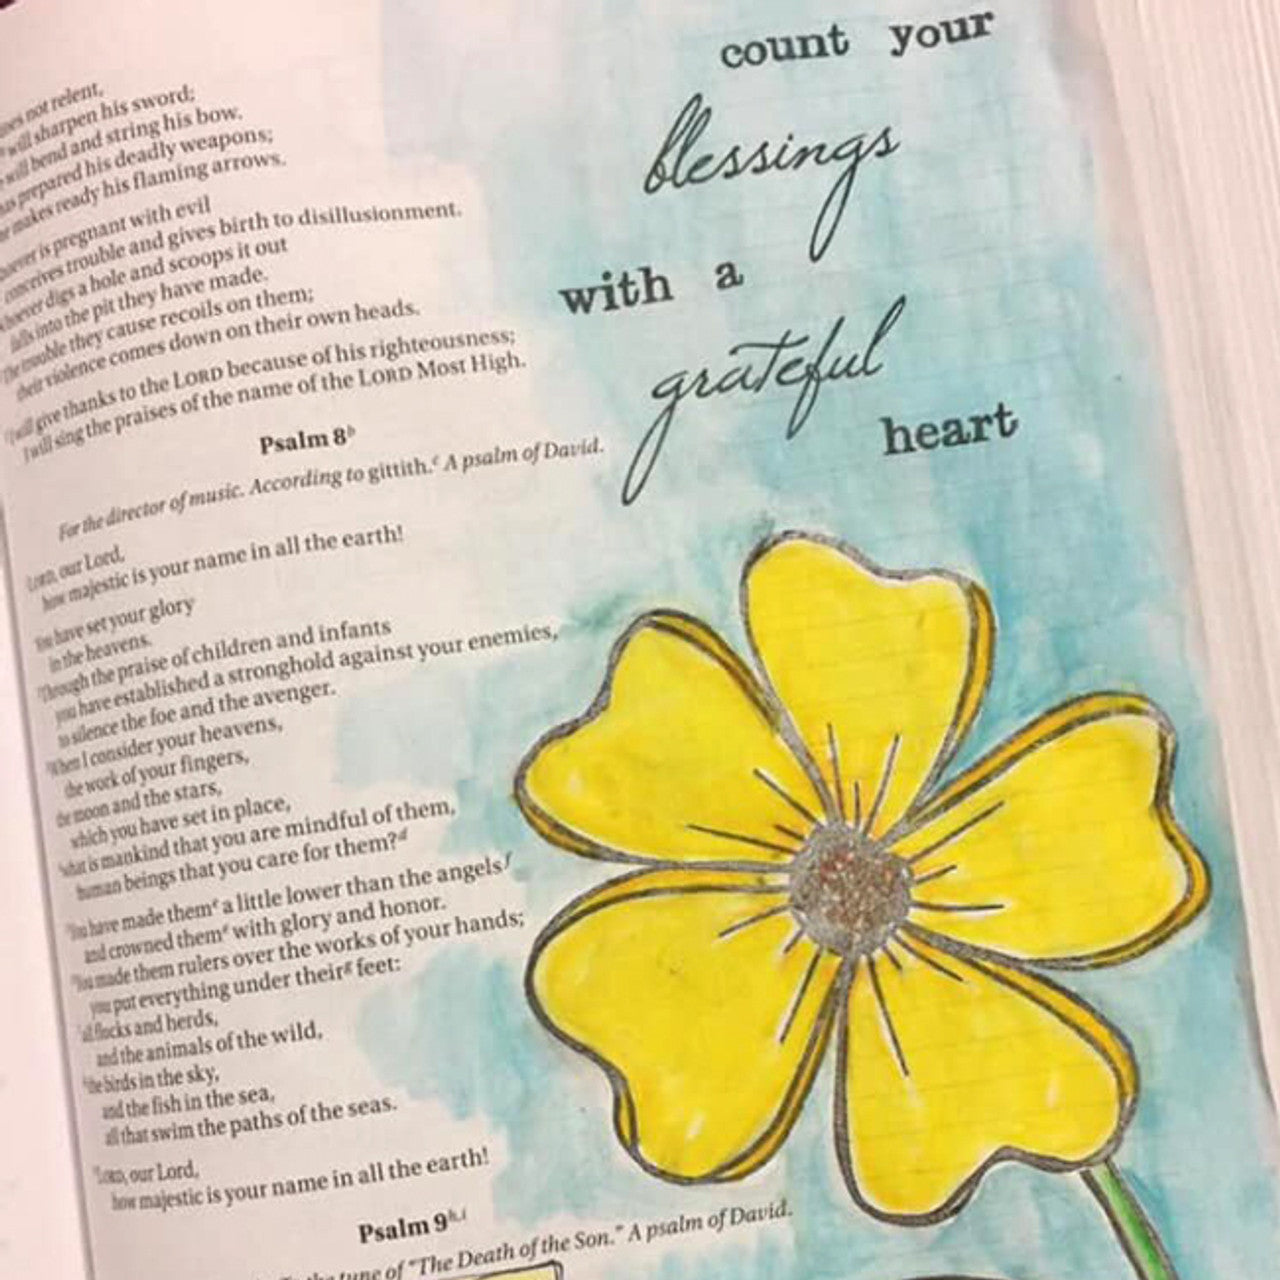 count your
blessings
with a
grateful
heart
not relent,
will sharpen his sword;
will bend and string his bow.
prepared his deadly weapons;
makes ready his flaming arrows.
is pregnant with evil
conceives trouble and gives birth to disillusionment.
digs a hole and scoops it out
falls into the pit they have made.
trouble they cause recoils on them;
their violence comes down on their own heads.
will give thanks to the LORD because of his righteousness;
I will sing the praises of the name of the LORD Most High.
Psalm 8ᵇ
For the director of music. According to gittith.ᶜ A psalm of David.
LORD, our Lord,
how majestic is your name in all the earth!
You have set your glory
in the heavens.
Through the praise of children and infants
you have established a stronghold against your enemies,
to silence the foe and the avenger.
When I consider your heavens,
the work of your fingers,
the moon and the stars,
which you have set in place,
what is mankind that you are mindful of them,
human beings that you care for them?ᵈ
You have made themᵉ a little lower than the angelsᶠ
and crowned themᵉ with glory and honor.
You made them rulers over the works of your hands;
you put everything under theirᵍ feet:
all flocks and herds,
and the animals of the wild,
the birds in the sky,
and the fish in the sea,
all that swim the paths of the seas.
LORD, our Lord,
how majestic is your name in all the earth!
Psalm 9ʰ,ⁱ
tune of "The Death of the Son." A psalm of David.